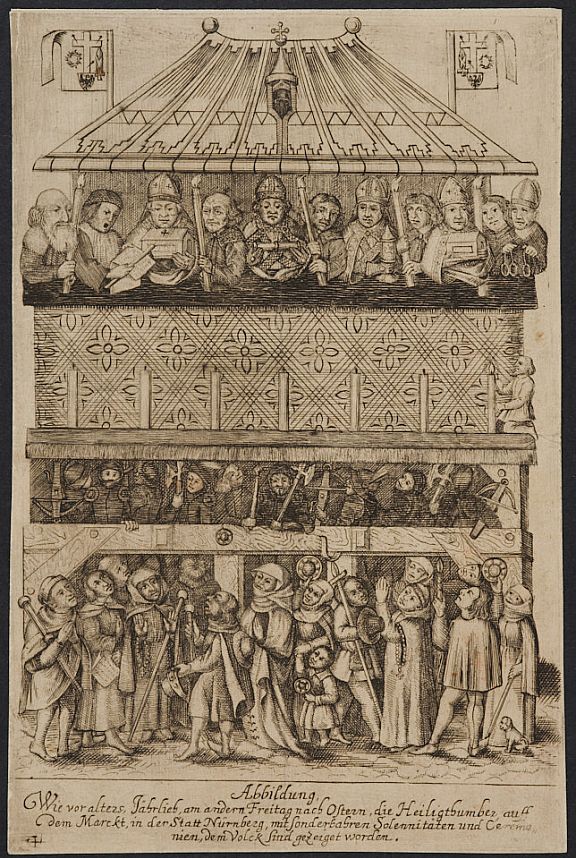 Abbildung,
Wie vor alters, Jährlich, am andern Freitag nach Ostern, die Heiligthumber, auff
dem Marckt, in der Statt Nürnberg, mit sonderbahren Solennitäten und Ceremo,
nien, dem Volck sind gezeiget worden.